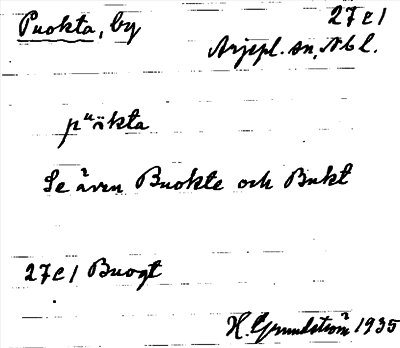 Puokta, by
27 e 1
Arjepl. sn, Nbl.
pᵘåkta
Se även Buokte och Bukt
27 e 1 Buogt
H. Grundström 1935